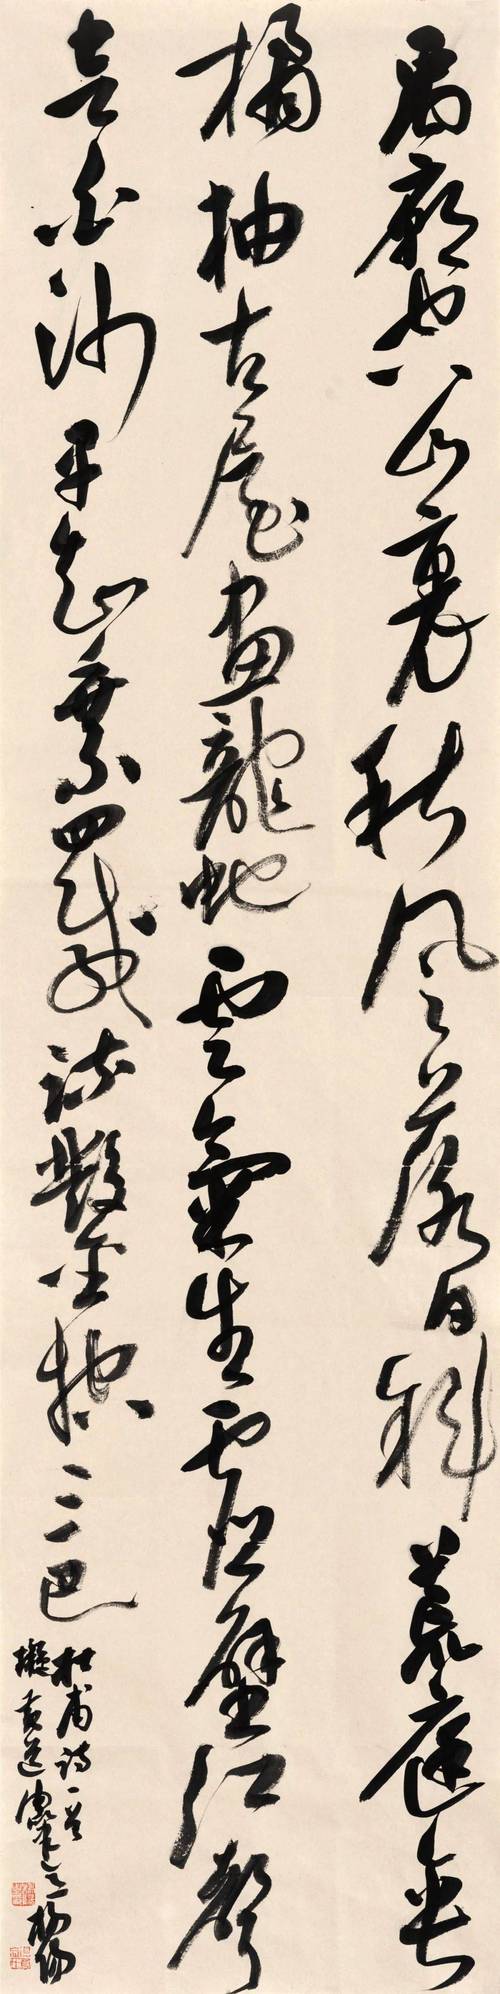 禹廟空山裏秋風落日斜荒庭垂
橘柚古屋畫龍蛇雲氣生虛壁江聲
走白沙早知乘四載疏鑿控三巴
杜甫詩一首
擬黃道周筆意